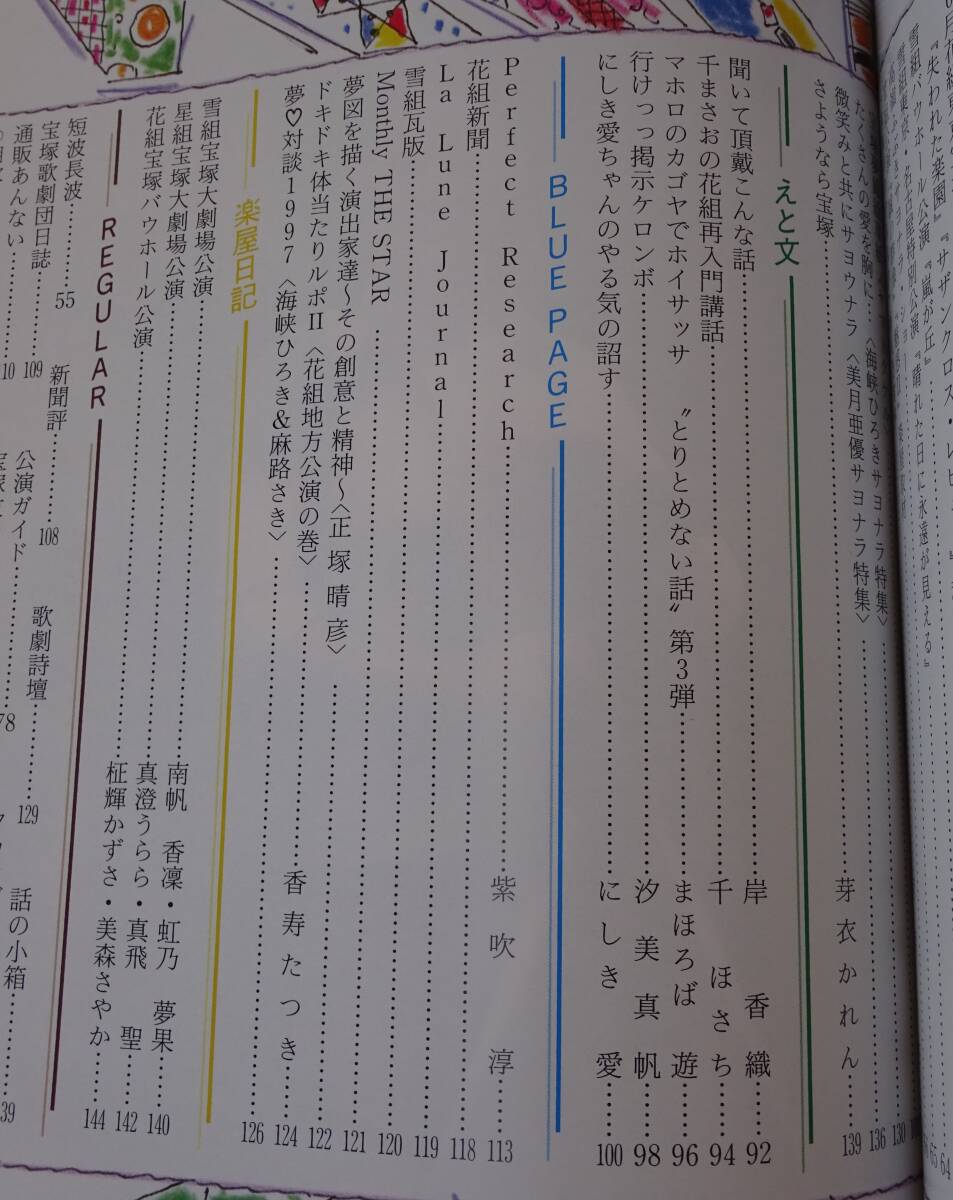 『失われた楽園』『サザンクロス・レビュー
雪組バウホール公演『嵐が丘』
名古屋特別公演『晴れた日に永遠が見える』
64
65
130
たくさんの愛を胸に〈海峡ひろきサヨナラ特集〉
136
微笑みと共にサヨウナラ〈美月亜優サヨナラ特集〉
さようなら宝塚……芽衣かれん……139
えと文
聞いて頂戴こんな話……岸 香織……92
千まさおの花組再入門講話……千 ほさち……94
マホロのカゴヤでホイサッサ 〝とりとめない話〟第3弾……まほろば 遊……96
行けっっ掲示ケロンボ……汐美真帆……98
にしき愛ちゃんのやる気の詔す……にしき 愛……100
BLUE PAGE
Perfect Research……紫吹 淳……113
花組新聞……118
La Lune Journal……119
雪組瓦版……120
Monthly THE STAR……121
夢図を描く演出家達～その創意と精神～〈正塚晴彦〉……122
ドキドキ体当たりルポⅡ〈花組地方公演の巻〉……香寿たつき……124
夢♡対談1997〈海峡ひろき&麻路さき〉……126
楽屋日記
雪組宝塚大劇場公演……南帆 香凜・虹乃 夢果……140
星組宝塚大劇場公演……真澄うらら・真飛 聖……142
花組宝塚バウホール公演……柾輝かずさ・美森さやか……144
REGULAR
短波長波……55
新聞評……108
歌劇詩壇……129
話の小箱……139
宝塚歌劇団日誌……109
公演ガイド……78
通販あんない……110